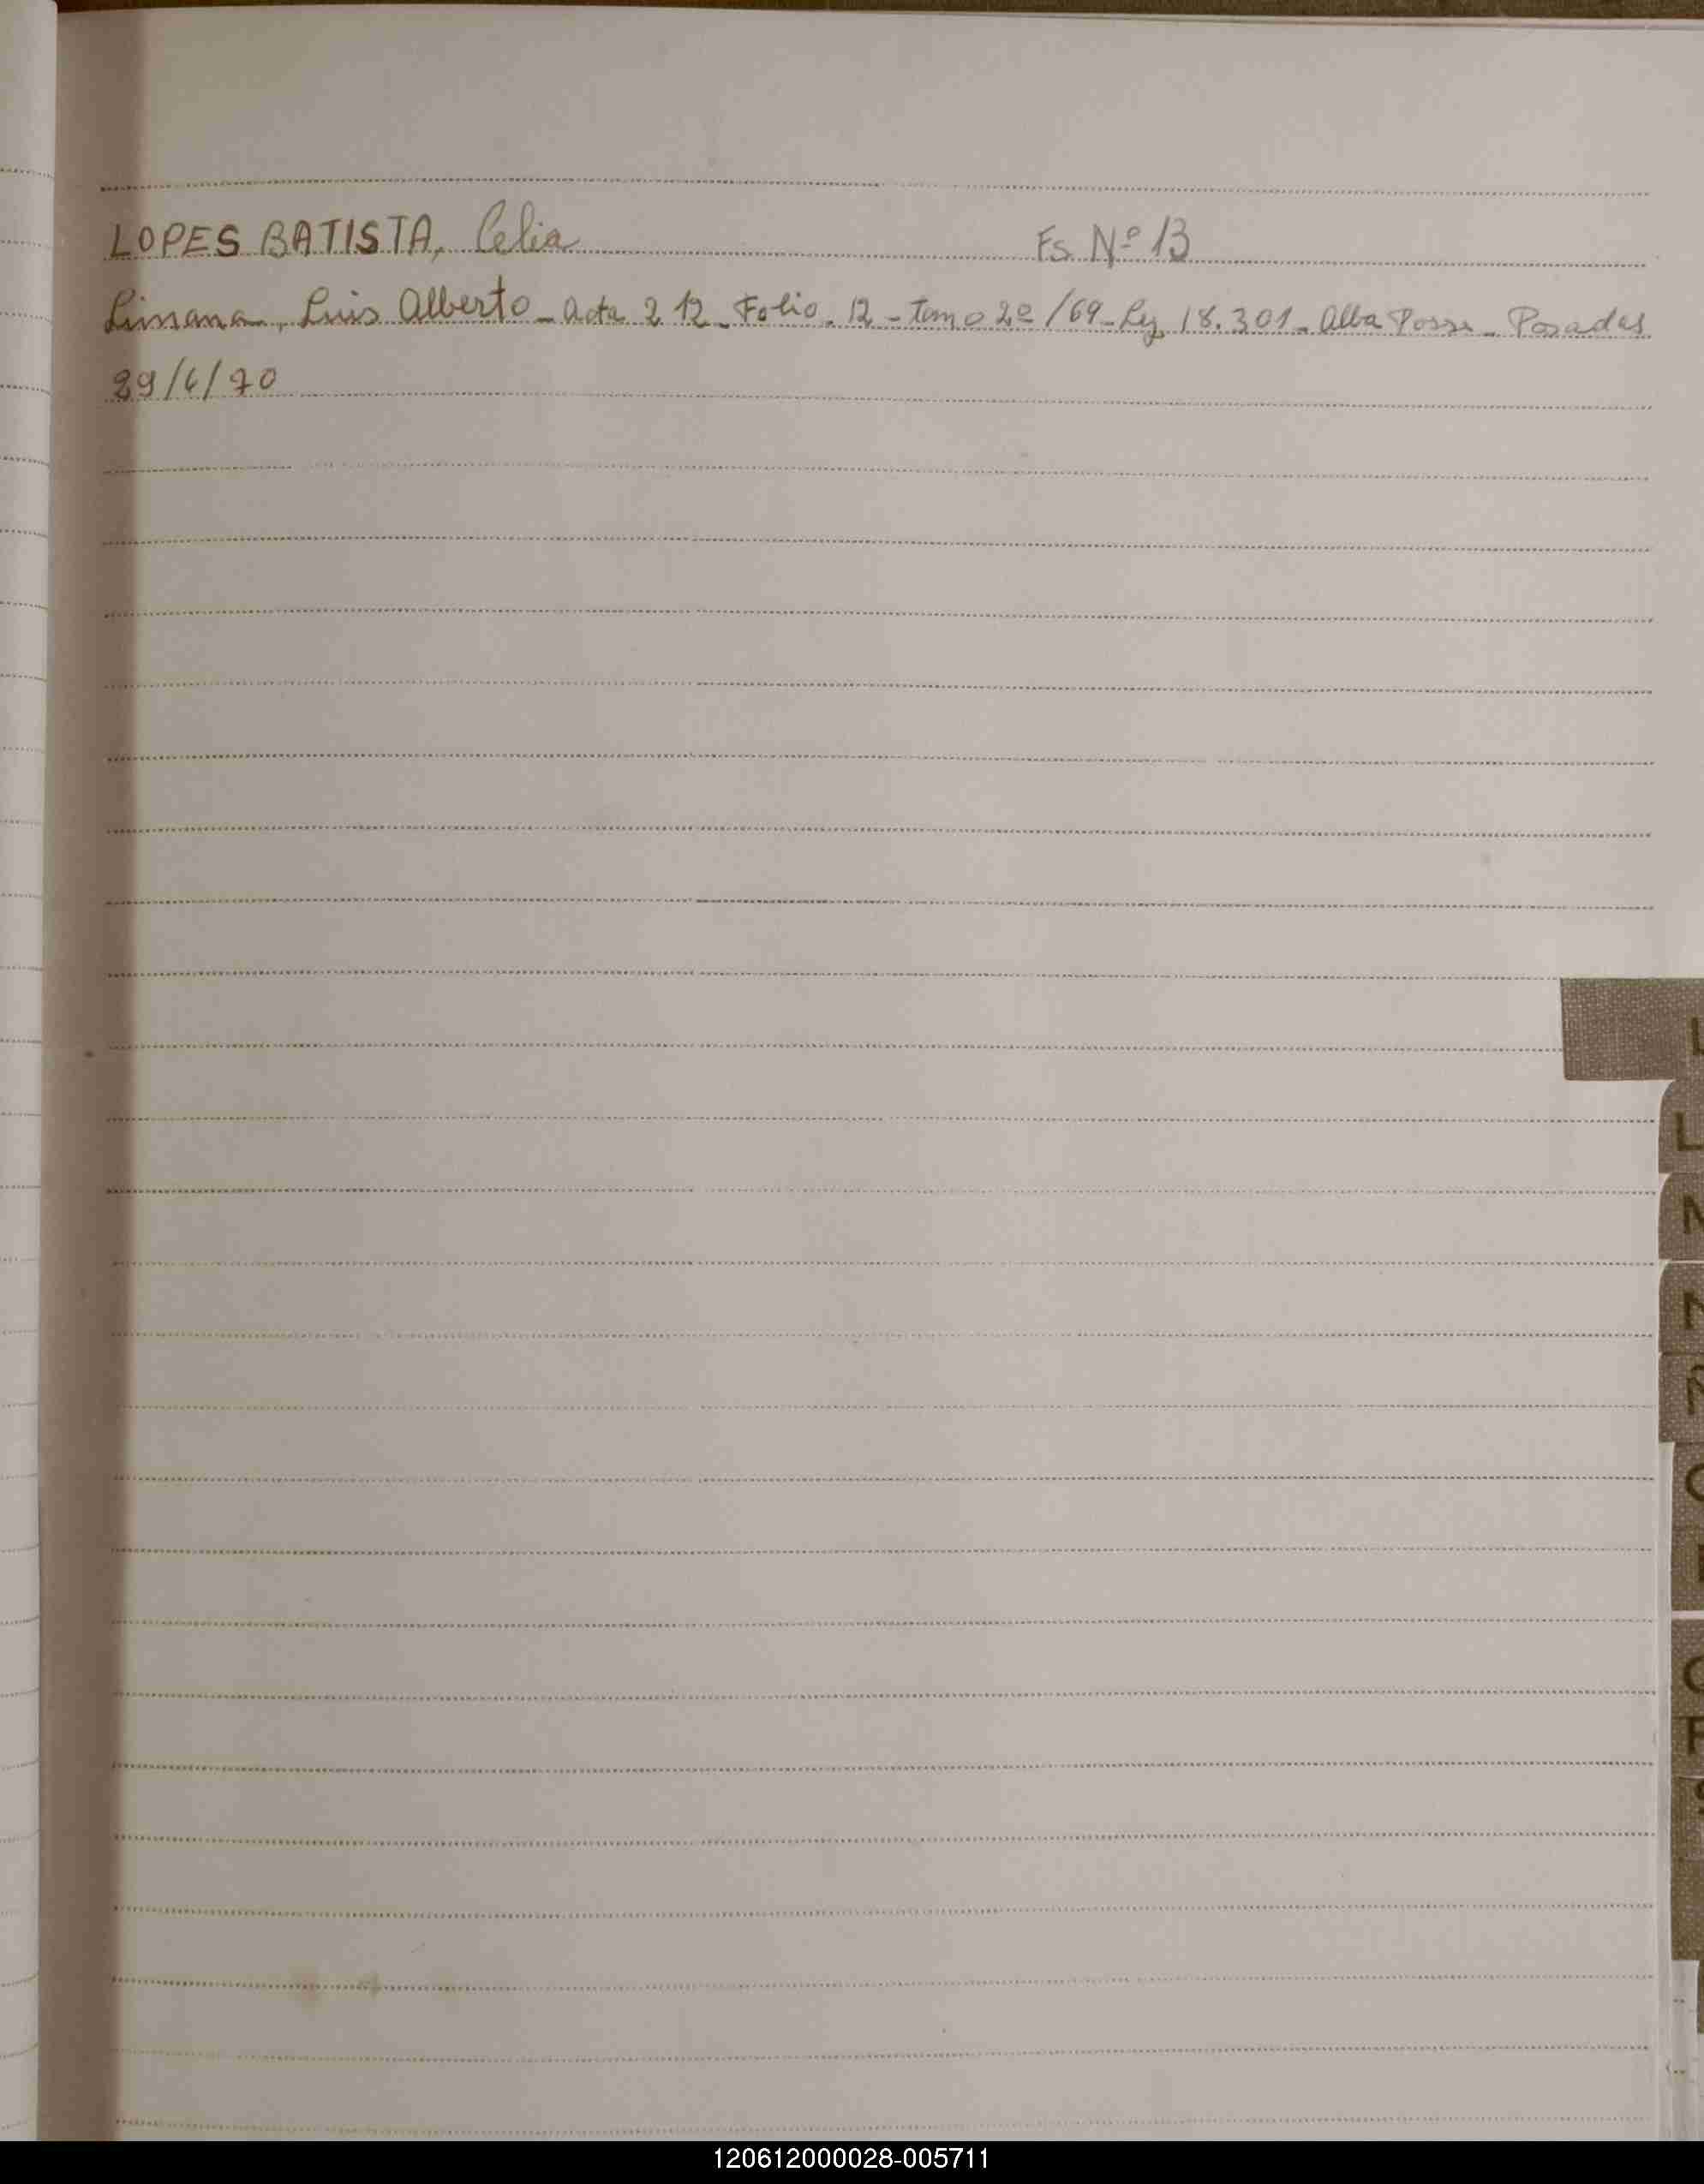 LOPES BATISTA, Celia Fs Nº 13
Limana, Luis Alberto - acta 212 - Folio. 12 - tomo 2º/69 - Ley 18.301 - Alba Posse - Posadas
29/6/70
L
L
M
N
Ñ
O
120612000028-005711